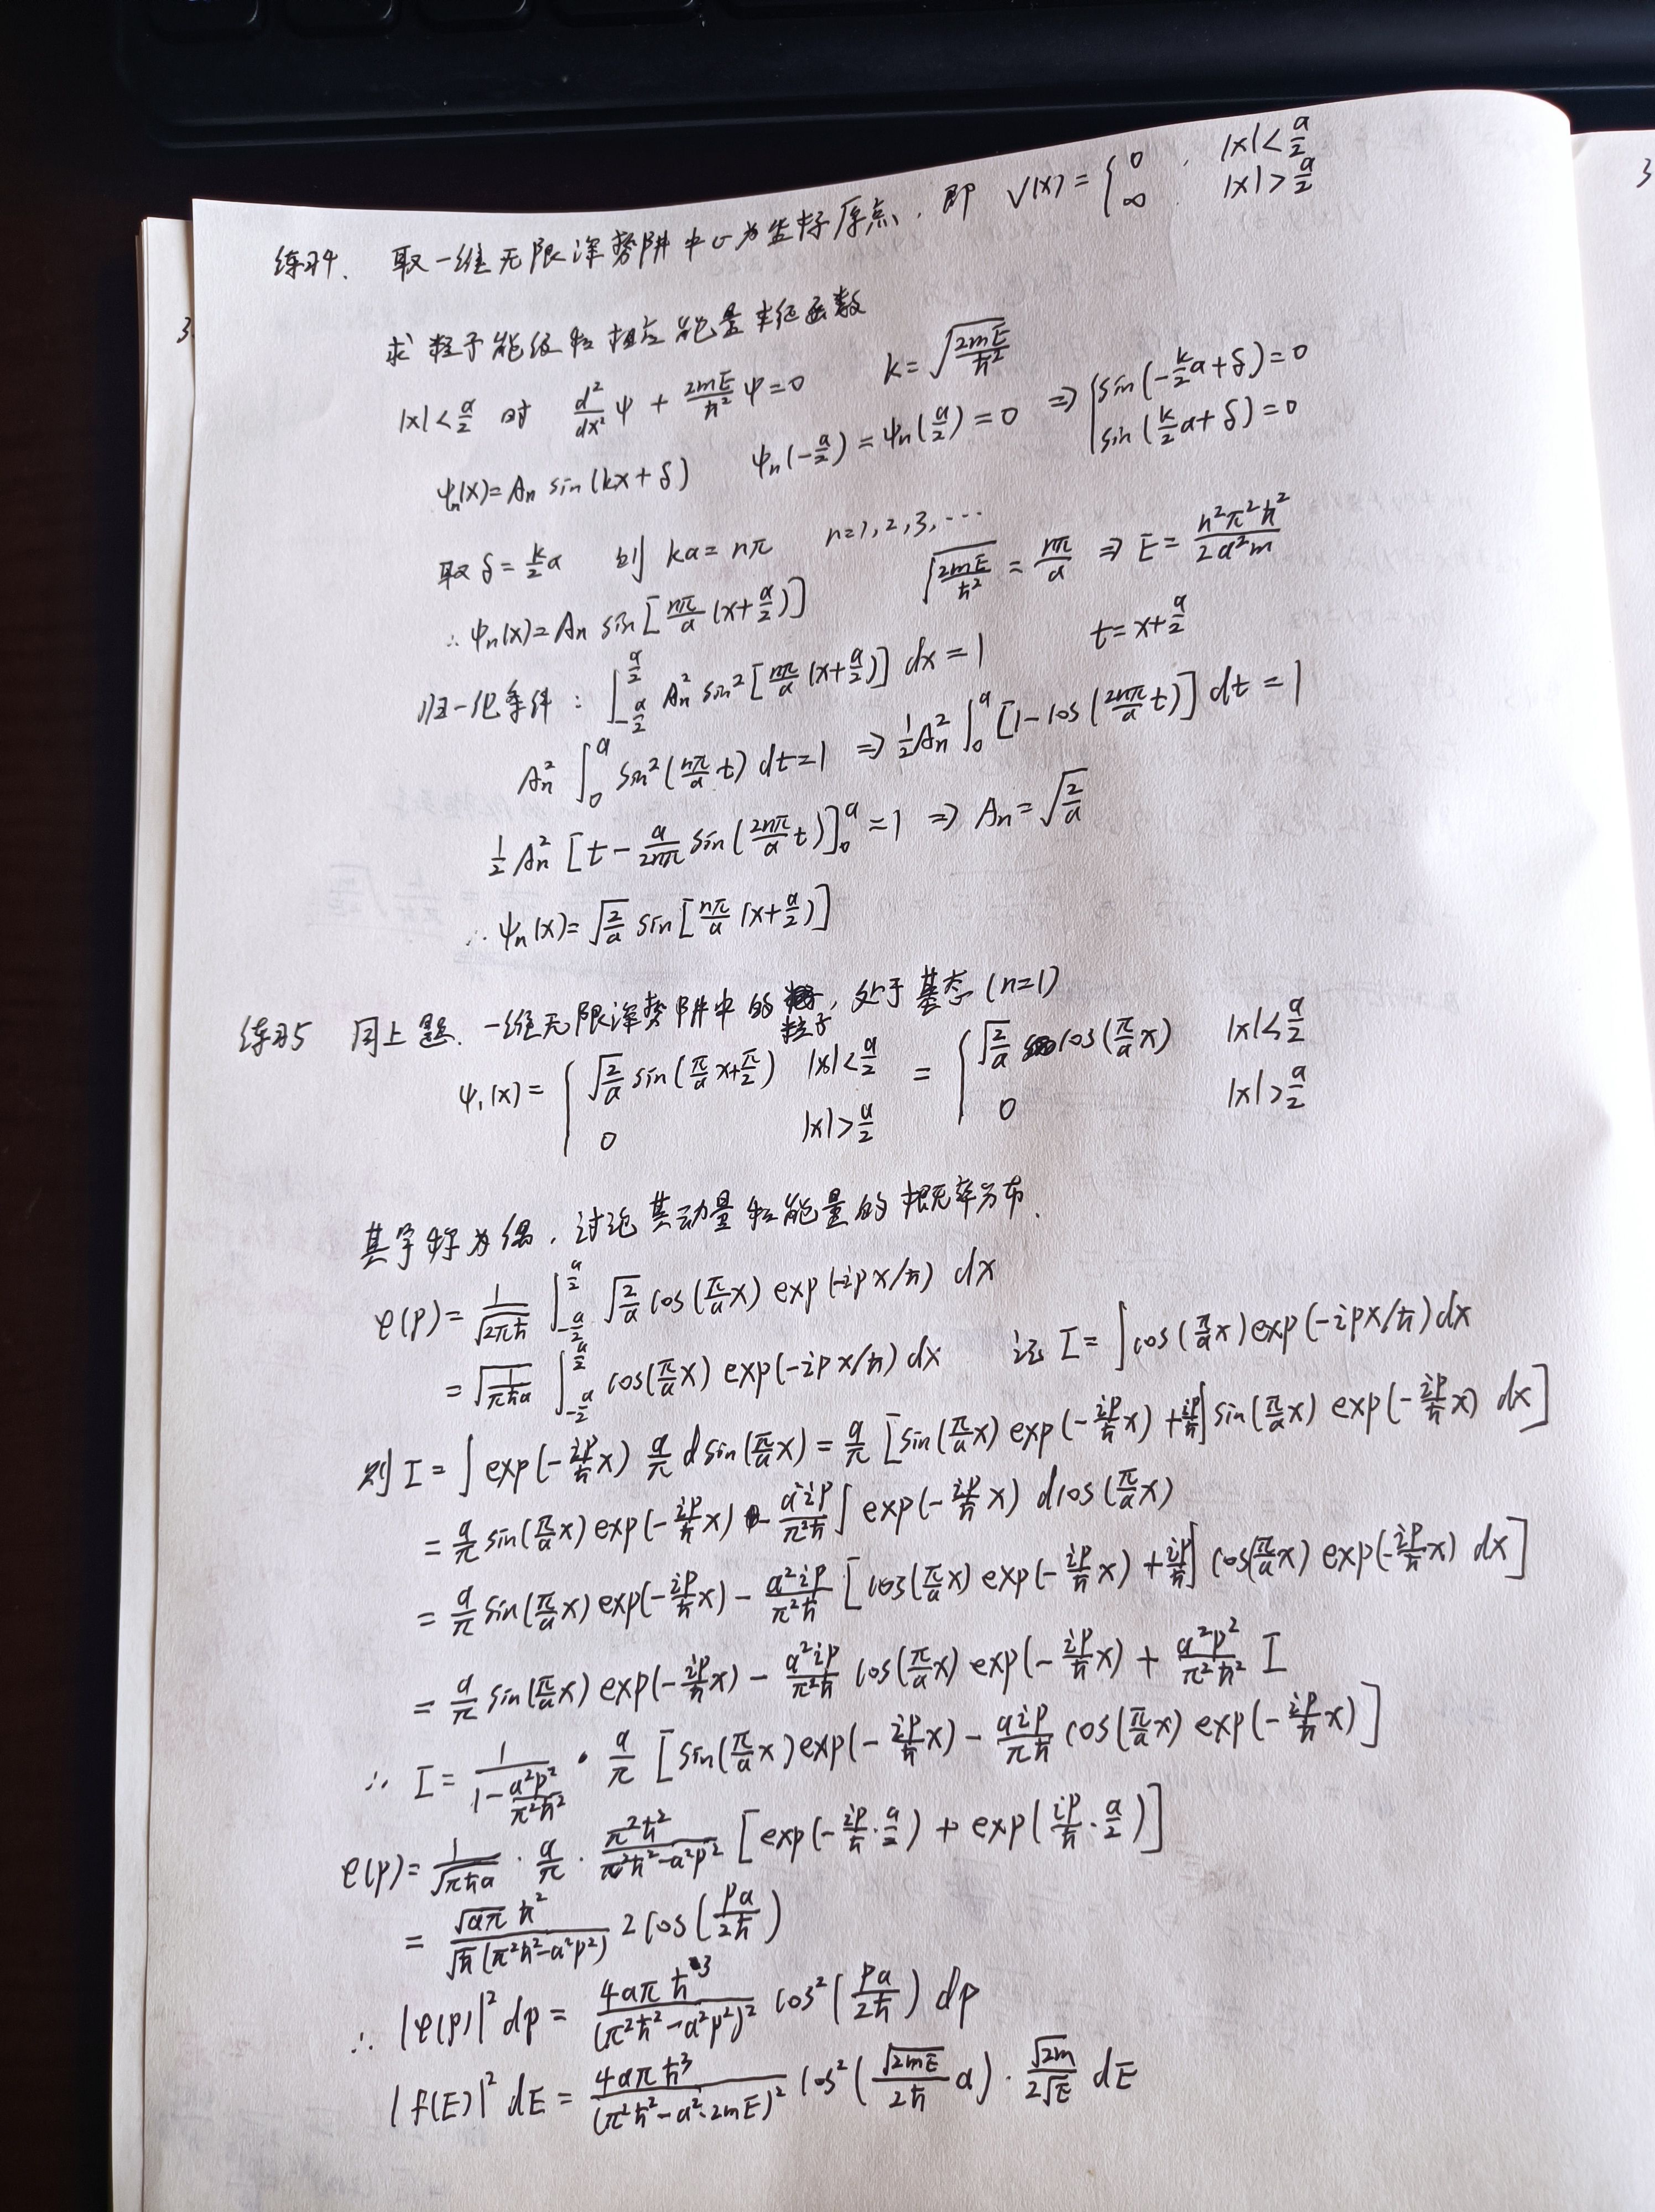 3
3
练习4. 取一维无限深势阱中心为坐标原点, 即 V(x) = { 0, |x| < a/2
∞ |x| > a/2
求粒子能级和相应能量本征函数
|x| < a/2 时 d²/dx² ψ + 2mE/ħ² ψ = 0 k = √(2mE/ħ²)
ψn(x) = An sin(kx + δ) ψn(-a/2) = ψn(a/2) = 0 ⇒ { sin(-k/2 a + δ) = 0
sin(k/2 a + δ) = 0
取 δ = k/2 a 则 ka = nπ n = 1, 2, 3, ⋯ √(2mE/ħ²) = nπ/a ⇒ E = n²π²ħ²/2a²m
∴ ψn(x) = An sin[nπ/a (x + a/2)]
归一化条件: ∫_{-a/2}^{a/2} An² sin²[nπ/a (x + a/2)] dx = 1 t = x + a/2
An² ∫_0^a sin²(nπ/a t) dt = 1 ⇒ 1/2 An² ∫_0^a [1 - cos(2nπ/a t)] dt = 1
1/2 An² [t - a/2nπ sin(2nπ/a t)]_0^a = 1 ⇒ An = √(2/a)
∴ ψn(x) = √(2/a) sin[nπ/a (x + a/2)]
练习5 同上题. 一维无限深势阱中的粒子, 处于基态 (n=1)
ψ₁(x) = { √(2/a) sin(π/a x + π/2) |x| < a/2 = { √(2/a) cos(π/a x) |x| < a/2
0 |x| > a/2 0 |x| > a/2
其宇称为偶, 讨论其动量和能量的概率分布.
φ(p) = 1/√(2πħ) ∫_{-a/2}^{a/2} √(2/a) cos(π/a x) exp(-ipx/ħ) dx
= √(1/πħa) ∫_{-a/2}^{a/2} cos(π/a x) exp(-ipx/ħ) dx 记 I = ∫ cos(π/a x) exp(-ipx/ħ) dx
则 I = ∫ exp(-ip/ħ x) a/π d sin(π/a x) = a/π [sin(π/a x) exp(-ip/ħ x) + ip/ħ ∫ sin(π/a x) exp(-ip/ħ x) dx]
= a/π sin(π/a x) exp(-ip/ħ x) - a²ip/π²ħ ∫ exp(-ip/ħ x) d cos(π/a x)
= a/π sin(π/a x) exp(-ip/ħ x) - a²ip/π²ħ [cos(π/a x) exp(-ip/ħ x) + ip/ħ ∫ cos(π/a x) exp(-ip/ħ x) dx]
= a/π sin(π/a x) exp(-ip/ħ x) - a²ip/π²ħ cos(π/a x) exp(-ip/ħ x) + a²p²/π²ħ² I
∴ I = 1/(1 - a²p²/π²ħ²) · a/π [sin(π/a x) exp(-ip/ħ x) - aip/πħ cos(π/a x) exp(-ip/ħ x)]
φ(p) = 1/√(πħa) · a/π · π²ħ²/(π²ħ² - a²p²) [exp(-ip/ħ · a/2) + exp(ip/ħ · a/2)]
= √(aπ) ħ²/√ħ (π²ħ² - a²p²) 2cos(pa/2ħ)
∴ |φ(p)|² dp = 4aπħ³/(π²ħ² - a²p²)² cos²(pa/2ħ) dp
|f(E)|² dE = 4aπħ³/(π²ħ² - a²·2mE)² cos²(√(2mE)/2ħ a) · √(2m)/2√E dE